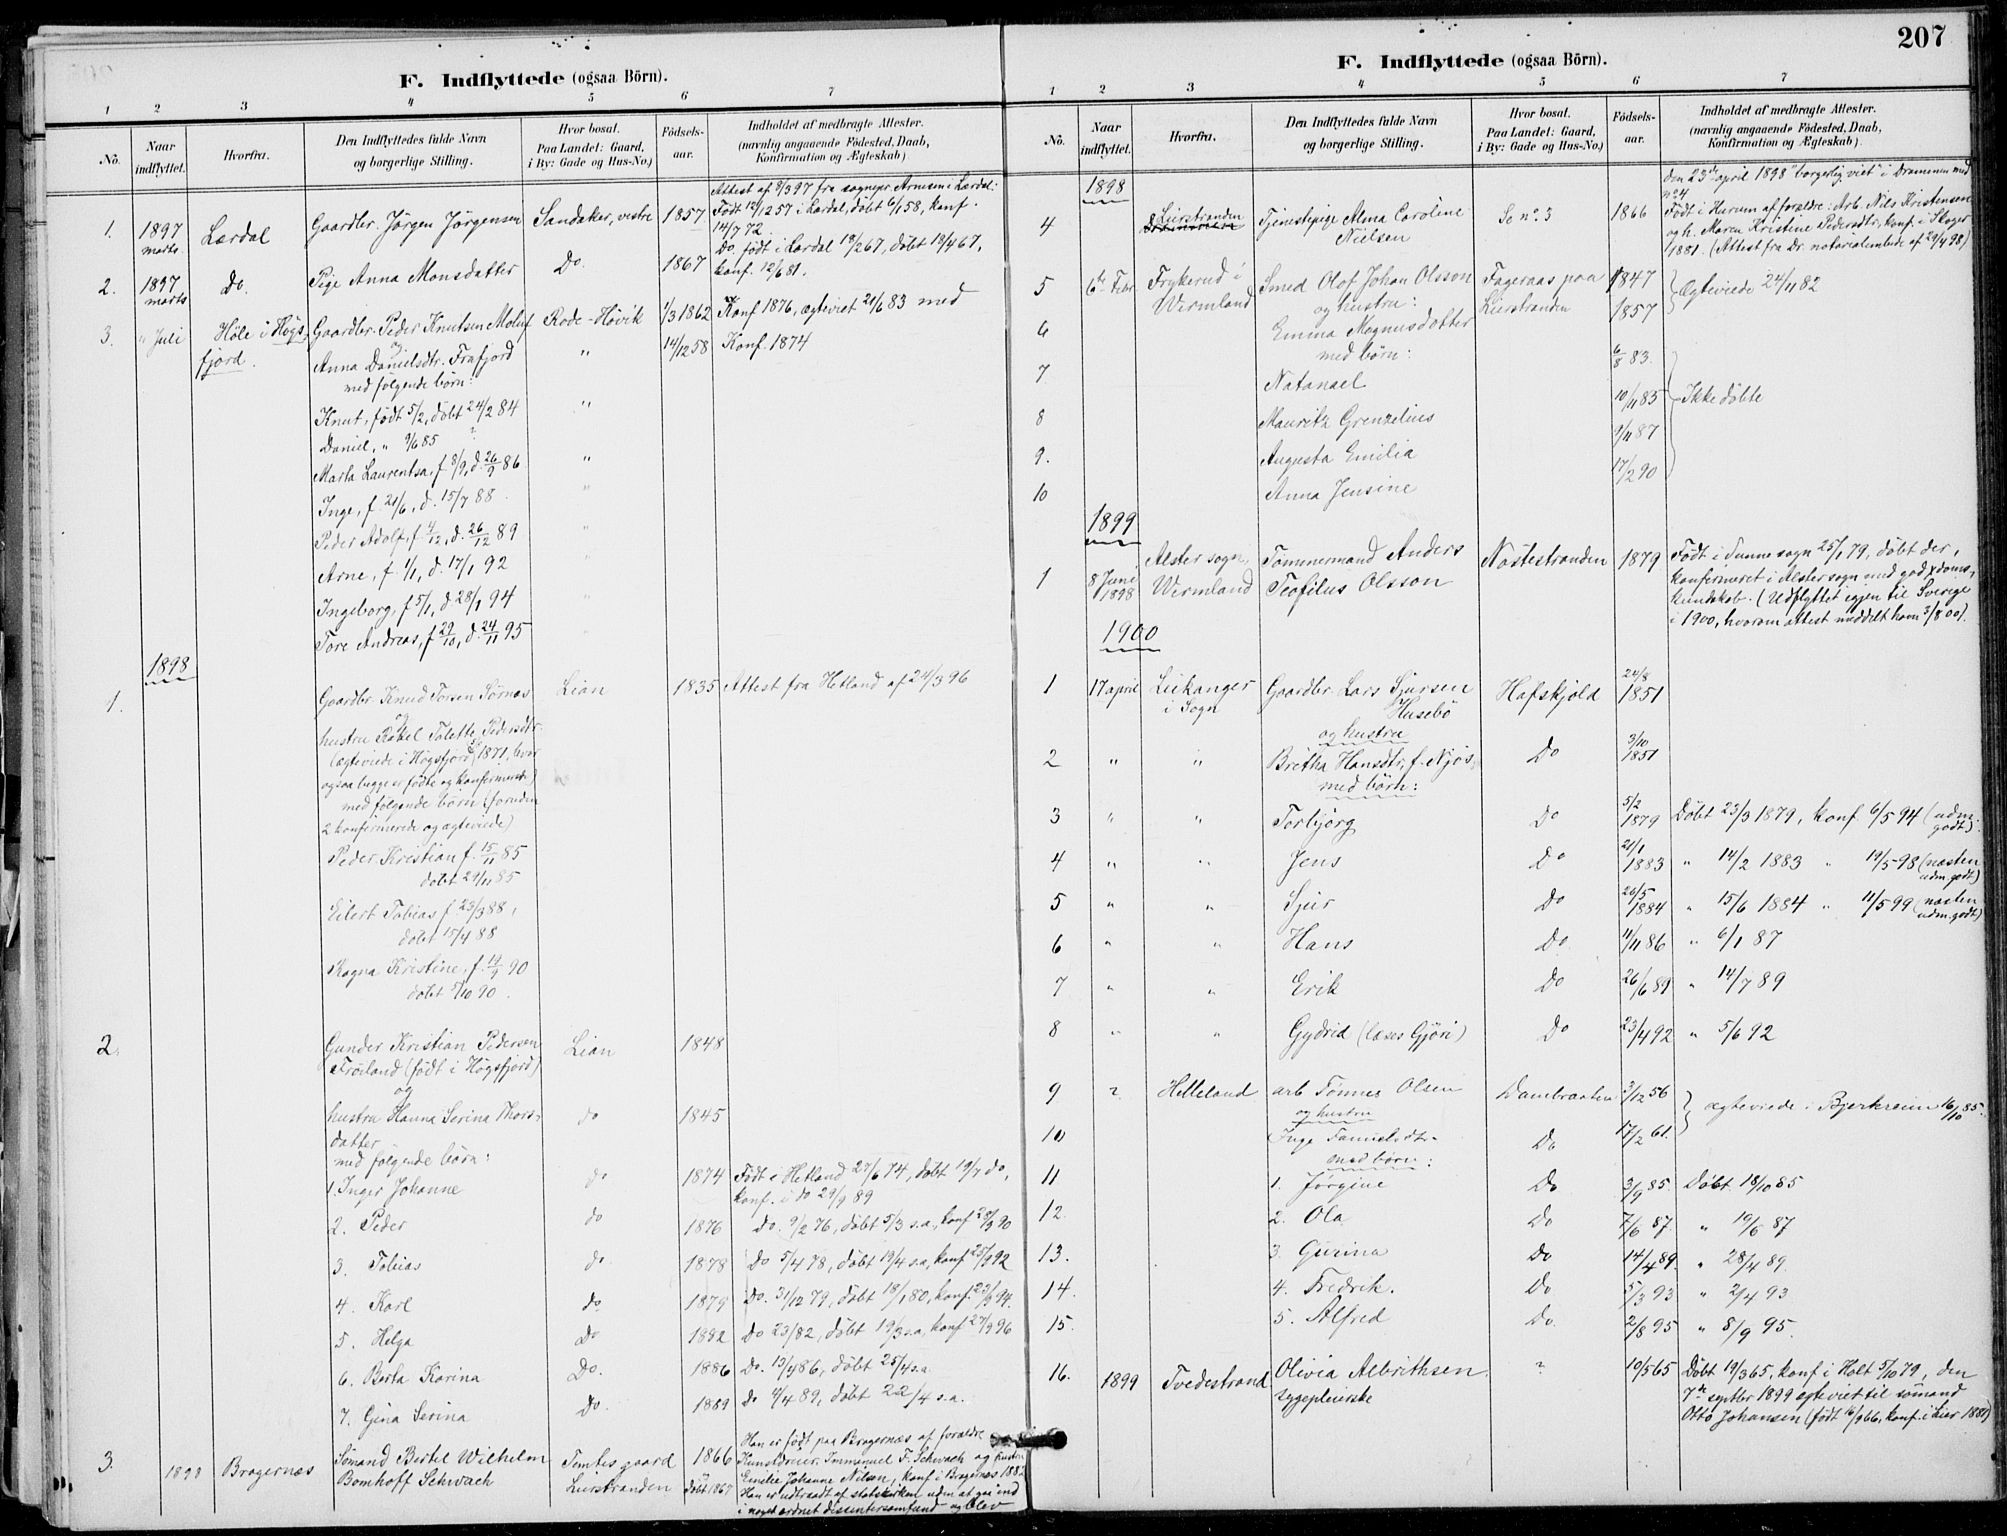 207
F. Indflyttede (ogsaa Börn).
1 2 3 4 5 6 7
No. Naar indflyttet. Hvorfra. Den Indflyttedes fulde Navn og borgerlige Stilling. Hvor bosat. Paa Landet: Gaard, i By: Gade og Hus-No.) Födsels-aar. Indholdet af medbragte Attester. (navnlig angaaende Födested, Daab, Konfirmation og Ægteskab)
Attest af 8/3 97 fra sognepr. Arnesen i Lærdal:
1. 1897 marts Lærdal Gaardbr. Jørgen Jørgensen Sandaker, vestre 1857 Født 12/12 57 i Lærdal, døbt 6/1 58, konf.
14/7 72
Do. født i Lærdal 19/2 67, døbt 19/4 67,
2. 1897 marts Do. Pige Anna Monsdatter Do. 1867 konf. 12/6 81.
3. " Juli Høle i Høgsfjord. Gaardbr. Peder Knutsen Molaug Rode-Høvik 1/3 1862 Konf 1876, ægteviet 21/6 83 med
og
Anna Danielsdtr. Frafjord " 14/12 58 Konf. 1874
med følgende børn:
Knut, født 5/2, døbt 24/2 84 "
Daniel, " 9/6 85 ?
Marta Laurentsa, f 8/9, d. 26/9 86 "
Inge, f. 21/6, d. 15/7 88. "
Peder Adolf, f 4/12, d. 26/12 89 "
Arne, f 1/1, d. 17/1 92 "
Ingeborg, f 5/1, d 28/1 94 "
Tore Andreas, f 29/10, d. 24/11 95 "
1898
1. Gaardbr. Knud Torsen Sørnæs Lian 1835 Attest fra Hetland af 24/3 96
og
hustru Rakel Tolette Pedersdtr.
(ægteviede i Høgsfjord 1871, hvor
ogsaa begge er fødte og konfirmerede)
med følgende børn (foruden
2 konfirmerede og ægteviede)
Peder Kristian f. 15/11 85
døbt 29/11 85
Eilert Tobias f 23/3 88,
døbt 15/4 88
Ragna Kristine, f. 14/9 90
døbt 5/10 90.
2. Gunder Kristian Pedersen Lian 1848
Trøiland (født i Høgsfjord)
og
hustru Hanna Serina Thors- do 1845
datter
med følgende børn:
1. Inger Johanne do 1874 Født i Hetland 27/6 74, døbt 19/7 do,
konf. i do 29/9 89
2. Peder do 1876 Do. 9/2 76, døbt 5/3 s.a, konf 28/9 90
3. Tobias do 1878 Do 5/4 78, døbt 19/4 s.a, konf 25/9 92
4. Karl do 1879 Do. 31/12 79, døbt 18/1 80, konf. 23/9 94.
5. Helga Do 1882 Do 23/ 82, døbt 19/3 s.a, konf 27/9 96
6. Berta Karina Do. 1886 Do. 13/4 86, døbt 25/4 s.a.
7. Gina Serina Do. 1889 Do 4/4 89, døbt 22/4 s.a.
Han er født paa Bragernæs af forældre
3. 1898 Bragernæs Sømand Bertel Wilhelm Tomtegaard 1866 Kunstdreier Immanuel F. Schwach og hustru
Bomhoff Schwach Lierstranden døbt 1867 Emilie Johanne Nilsen, konf i Bragernæs 1882
Han er udtraadt af statskirken uden at gaa ind
i noget ordnet dissentersamfund og blev
F. Indflyttede (ogsaa Börn).
1 2 3 4 5 6 7
No. Naar indflyttet. Hvorfra. Den Indflyttedes fulde Navn og borgerlige Stilling. Hvor bosat. Paa Landet: Gaard, i By: Gade og Hus-No.) Födsels-aar. Indholdet af medbragte Attester. (navnlig angaaende Födested, Daab, Konfirmation og Ægteskab)
1898 den 23de april 1898 borgerlig viet i Drammen med
no 4
4 Lierstranden Tjenestepige Alma Caroline Nielsen Se no. 3 1866 Født i Hurum af forældre: Arb Nils Kristensen
og h. Maren Kristine Pedersdtr, konf. i Skoger
1881. (Attest fra Dr. notarialembede af 29/4 98)
5 6te Febr Frykerud i Wermland Smed Olof Johan Olsson Fageraas paa Lierstranden 1847 Ægteviede 24/11 82
og hustru:
6 Emma Magnusdatter 1857
med børn:
7 Natanael 6/8 83.
8 Mauritz Grenzelius 10/11 85 Ikke døbte
9. Augusta Emilia 9/11 87
10 Anna Jensine 17/2 90
1899
1 8 Juni 1898 Alster sogn, Wermland Tømmermand Anders Teofilus Olsson Nøstestranden 1879 Født i Tunne sogn 25/1 79, døbt der,
konfirmeret i Alster sogn med god kdoms-
kundskab. (Udflyttet igjen til Sverige
i 1900, hvorom attest meddelt ham 3/8 00).
1900
1 17 april Leikanger i Sogn Gaardbr. Lars Sjursen Husebø Hafskjold 24/8 1851
og hustru
2 " " Britha Hansdtr, f. Njøs Do 3/10 1851
med børn:
3 " " Torbjørg Do 5/2 1879 Døbt 23/3 1879, konf 6/5 94 (udm. godt).
4 " " Jens Do 21/1 1883 " 14/2 1883 " 19/5 98 (næsten udm. godt)
5 " " Sjur Do 26/5 1884 " 15/6 1884 " 11/5 99 (næsten udm. godt)
6 " " Hans Do. 11/11 86 " 6/1 87
7 " " Erik Do 26/6 89 " 14/7 89
8 " " Gydrid (læses Gjøri) Do 23/4 92 " 5/6 92
9 ? Helleland arb Tønnes Olsen Dambraaten 3/12 56 ægteviede i Bjerkreim 16/10 85.
og hustru
10 Inge Do 17/2 61.
med børn:
11 1. Jørgine Do 3/9 85. Døbt 18/10 85
12. 2. Ola Do 7/6 87. " 19/6 87
13. 3. Gurina Do 14/4 89. " 28/4 89.
14. 4. Fredrik. Do 5/3 93 " 2/4 93
15. 5. Alfred Do. 2/8 95 " 8/9 95.
16. 1899 Tvedestrand Olivia Albrithsen ? 10/5 65 Døbt 19/3 65, konf i Holt 5/10 79, den
sygepleierske 7de septbr 1899 ægteviet til sømand
Otto Johansen (født 16/9 66, konf. i Lier 1881)